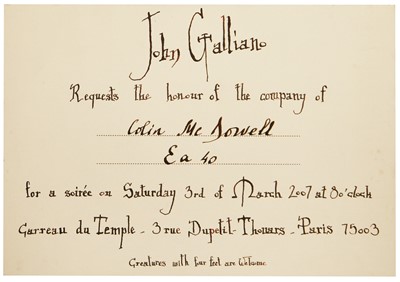 John Galliano
Requests the honour of the company of
Colin McDowell
Ea 40
for a soirée on Saturday 3rd of March 2007 at 8o'clock
Carreau du Temple - 3 rue Dupetit-Thouars - Paris 75003
Creatures with four feet are Welcome